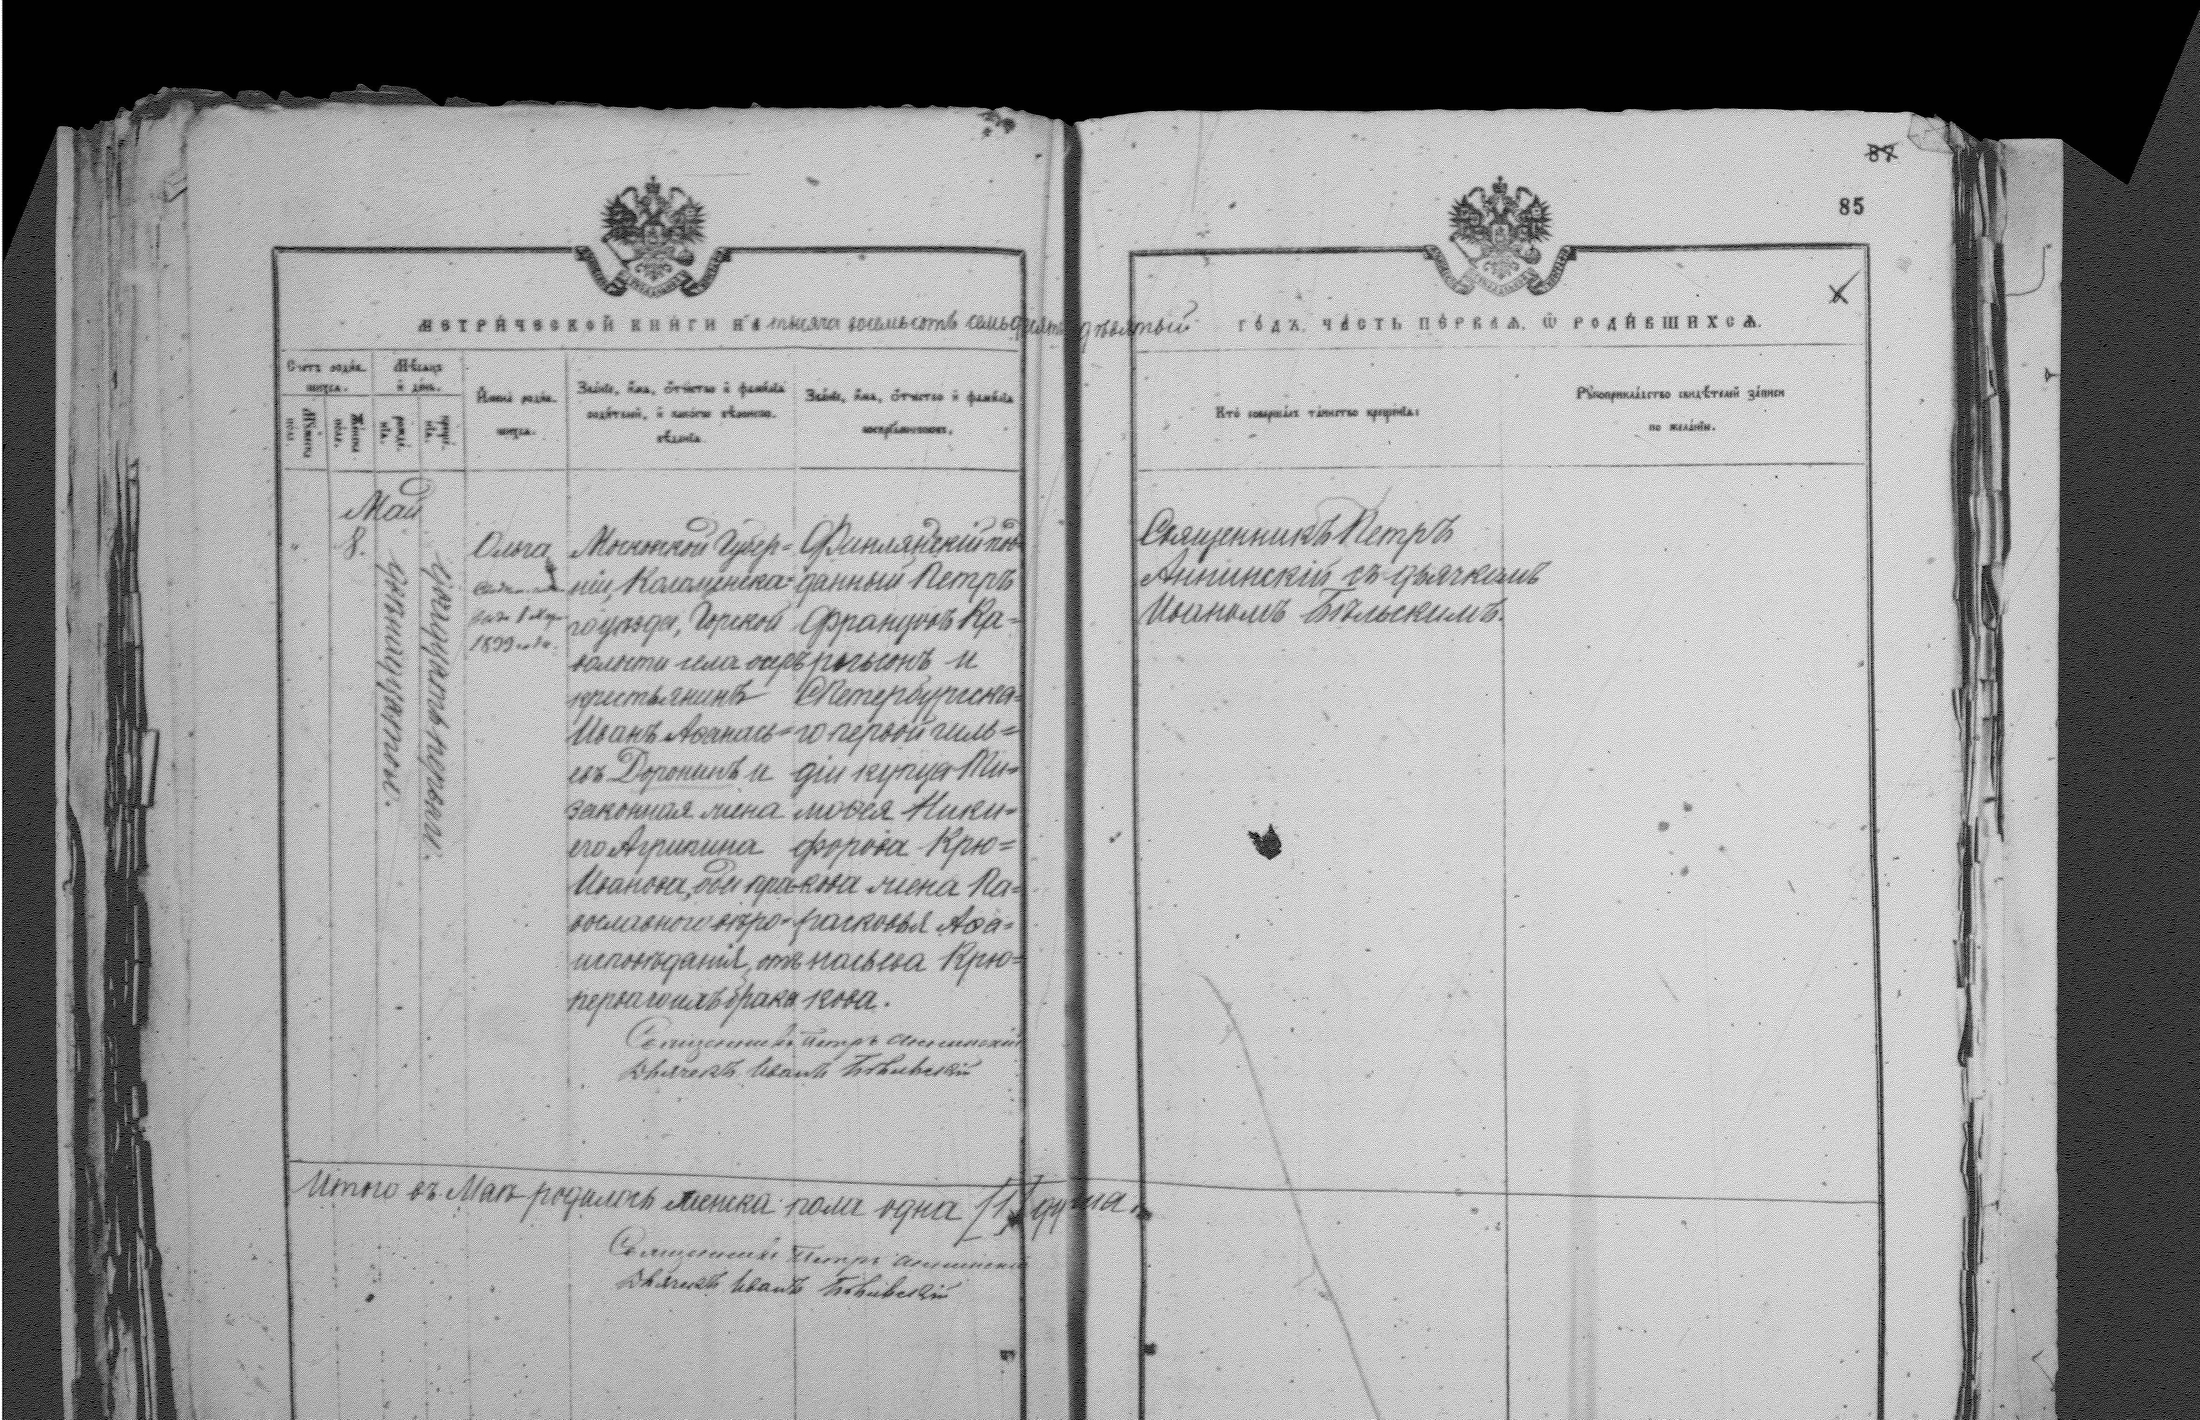 87
85
МЕТРИЧЕСКОЙ КНИГИ НА тысяча восемьсотъ семьдесятъ девятый ГОДЪ, ЧАСТЬ ПЕРВАЯ, Ѡ РОДИВШИХСЯ.
Счетъ родив-
шихся.
Мужеска
пола.
Женска
пола.
Мѣсяцъ
и день.
рожде-
нія.
креще-
нія.
Имена родив-
шихся.
Званіе, имя, отчество и фамилія
родителей, и какого вѣроиспо-
вѣданія.
Званіе, имя, отчество и фамилія
воспріемниковъ.
Кто совершалъ таинство крещенія:
Рукоприкладство свидѣтелей записи
по желанію.
Май
8.
Ольга
8 Мая
1899 года.
Московской Губер=
ніи, Коломенска=
го уѣзда, Горской
волости села озеръ
крестьянинъ
Иванъ Аѳанась=
евъ Доронинъ и
законная жена
его Агрипина
Иванова, обои пра-
вославнаго вѣро-
исповѣданія, отъ
перваго ихъ брака
Финляндскій под
данный Петръ
Францовъ Ка=
рльсонъ и
СПетербургска=
го первой гиль=
діи купца Ти=
моѳея Ники=
форова Крю=
кова жена Па=
расковья Аѳа=
насьева Крю=
кова.
Священникъ Петръ
Аннинскій съ дьячкомъ
Иваномъ Бѣльскимъ.
Священникъ Петръ Аннинскій
Дьячекъ Иванъ Бѣльскій
Итого въ Маѣ родилось женска пола одна [1] душа.
Священникъ Петръ Аннинскій
Дьячекъ Иванъ Бѣльскій